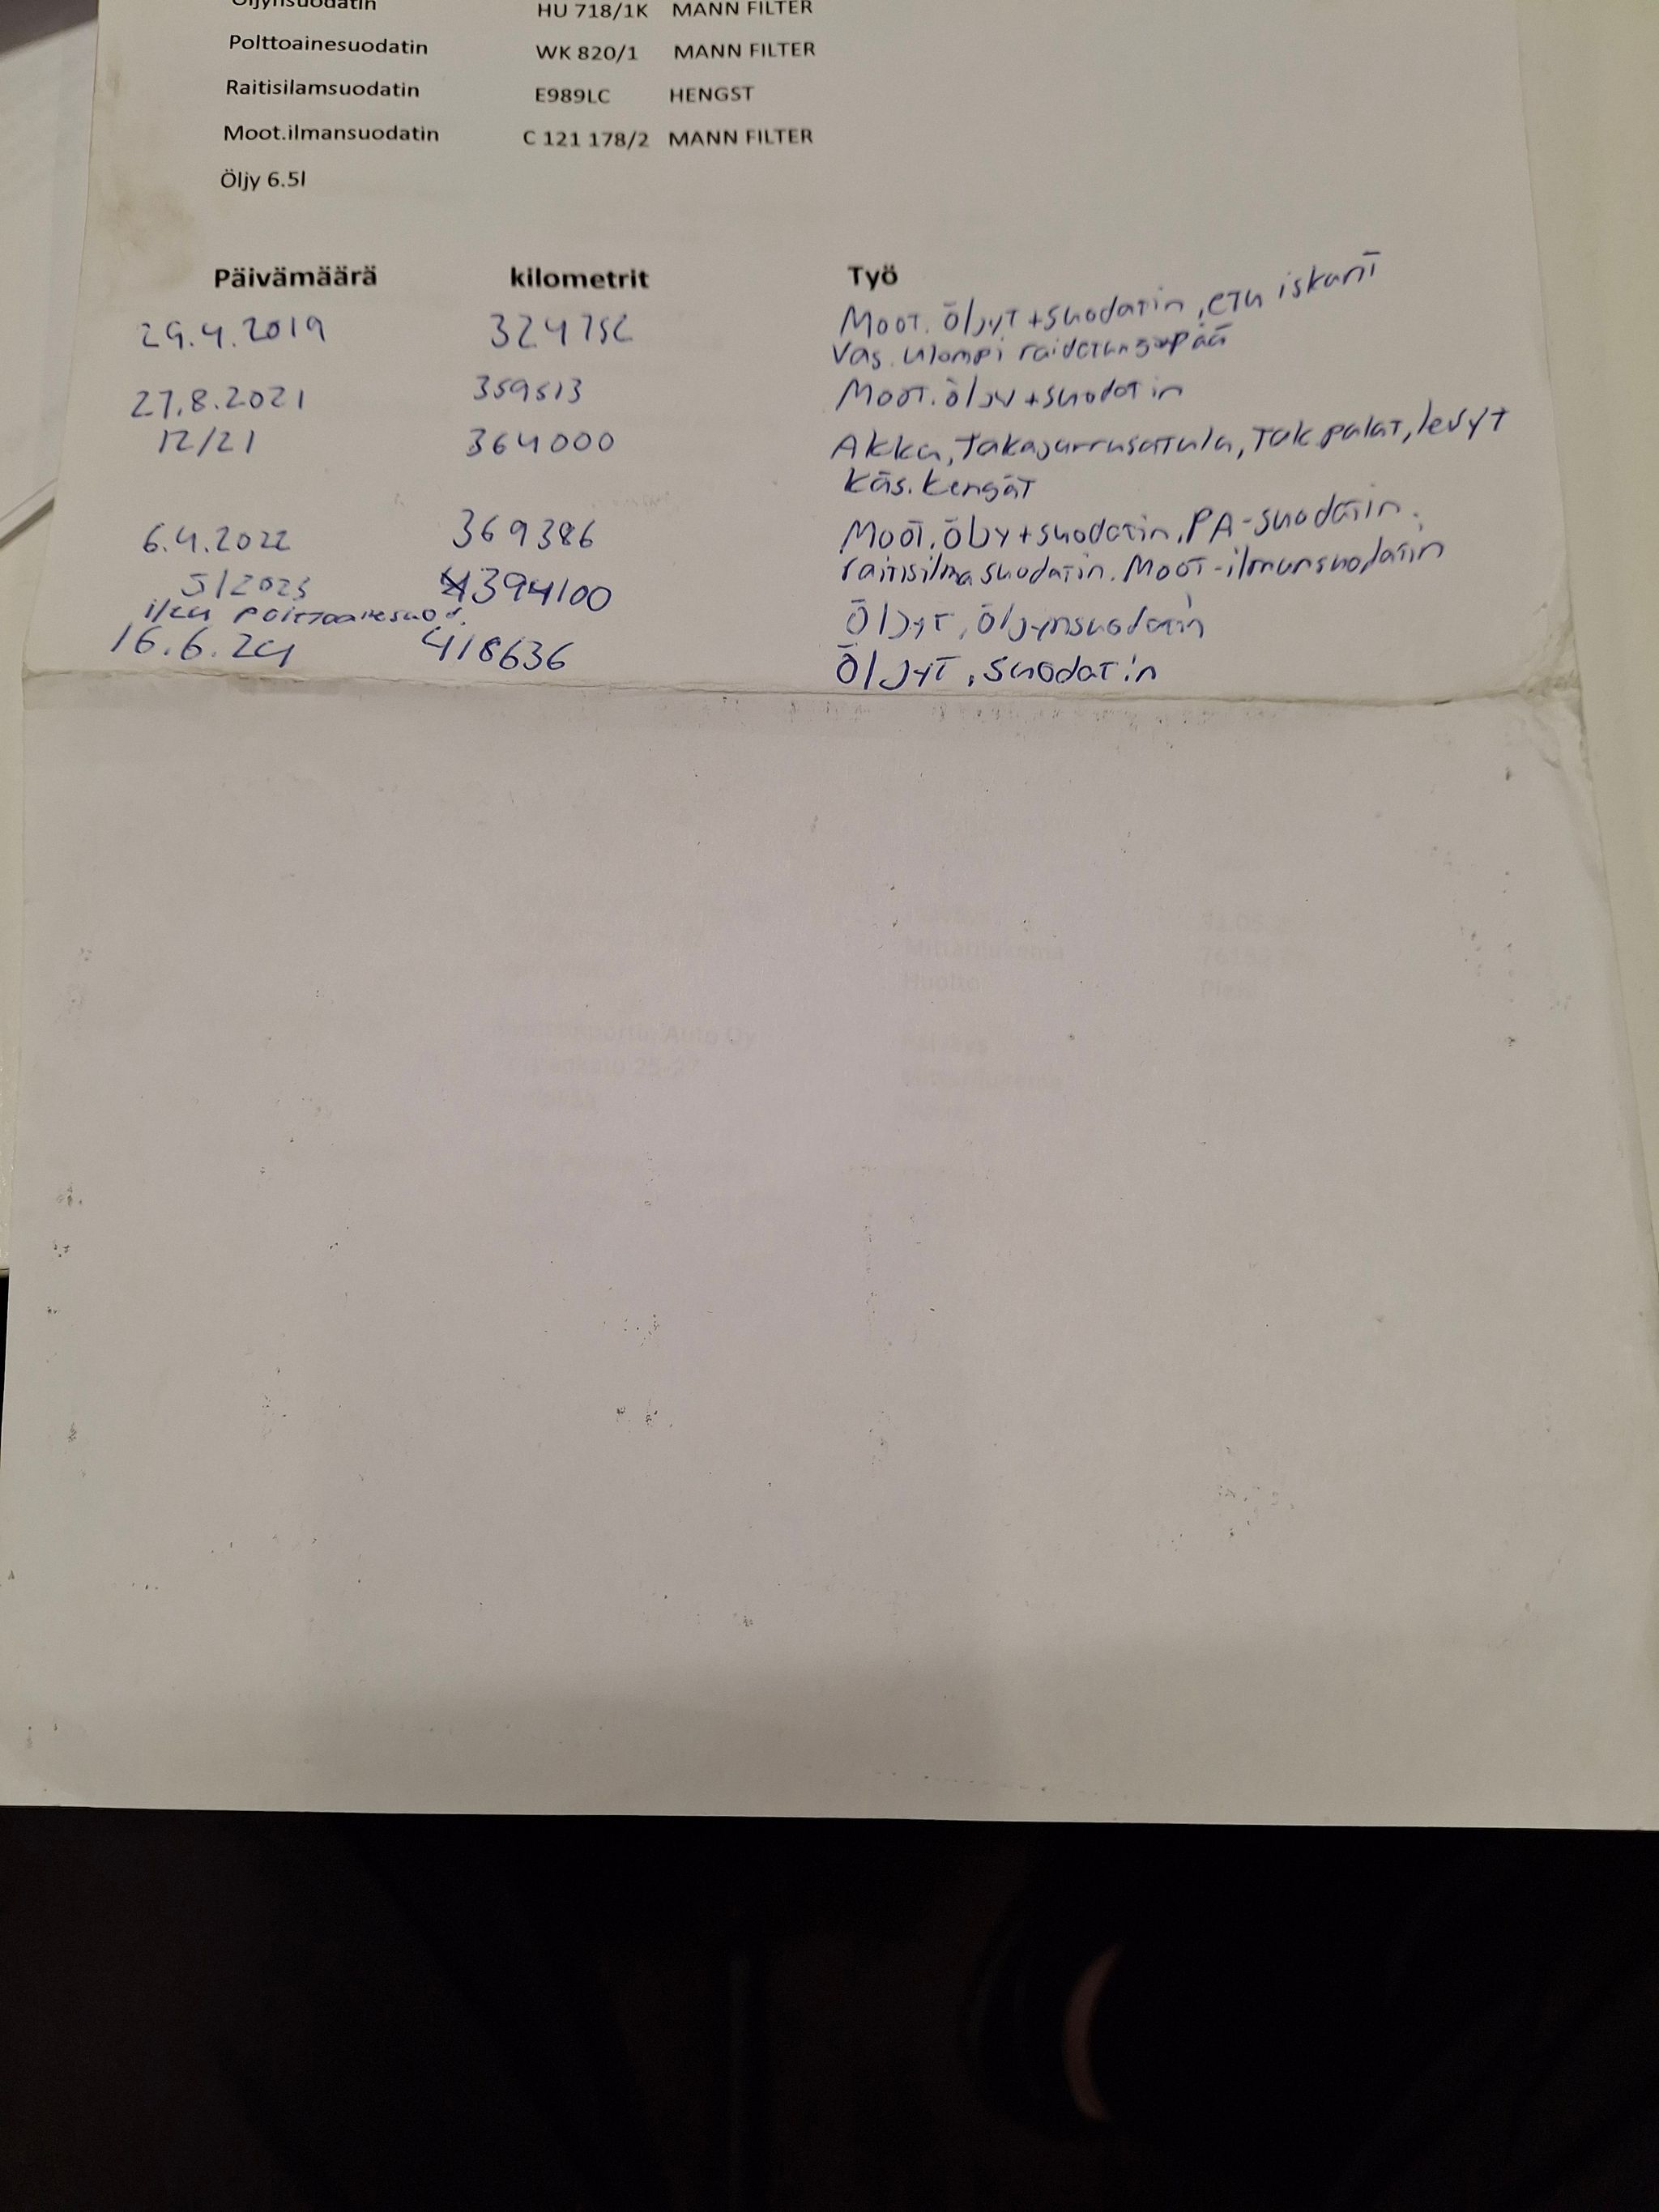 Öljynsuodatin HU 718/1K MANN FILTER
Polttoainesuodatin WK 820/1 MANN FILTER
Raitisilamsuodatin E989LC HENGST
Moot.ilmansuodatin C 121 178/2 MANN FILTER
Öljy 6.5l
Päivämäärä kilometrit Työ
29.4.2019 324752 Moot. Öljyt + suodatin, etu iskarit
Vas. ulompi raidetangonpää
27.8.2021 359513 Moot. öljy + suodatin
12/21 364000 Akku, Takajarrusatula, Tak palat, levyt
Käs. kengät
6.4.2022 369386 Moot. Öljy + suodatin, PA-suodatin.
raitisilmasuodatin. Moot-ilmansuodatin
5/2023 394100 Öljyt, Öljynsuodatin
ilman polttoainesuod.
16.6.24 418636 Öljyt, suodatin
Mittarilukema
Huolto
Auto Oy